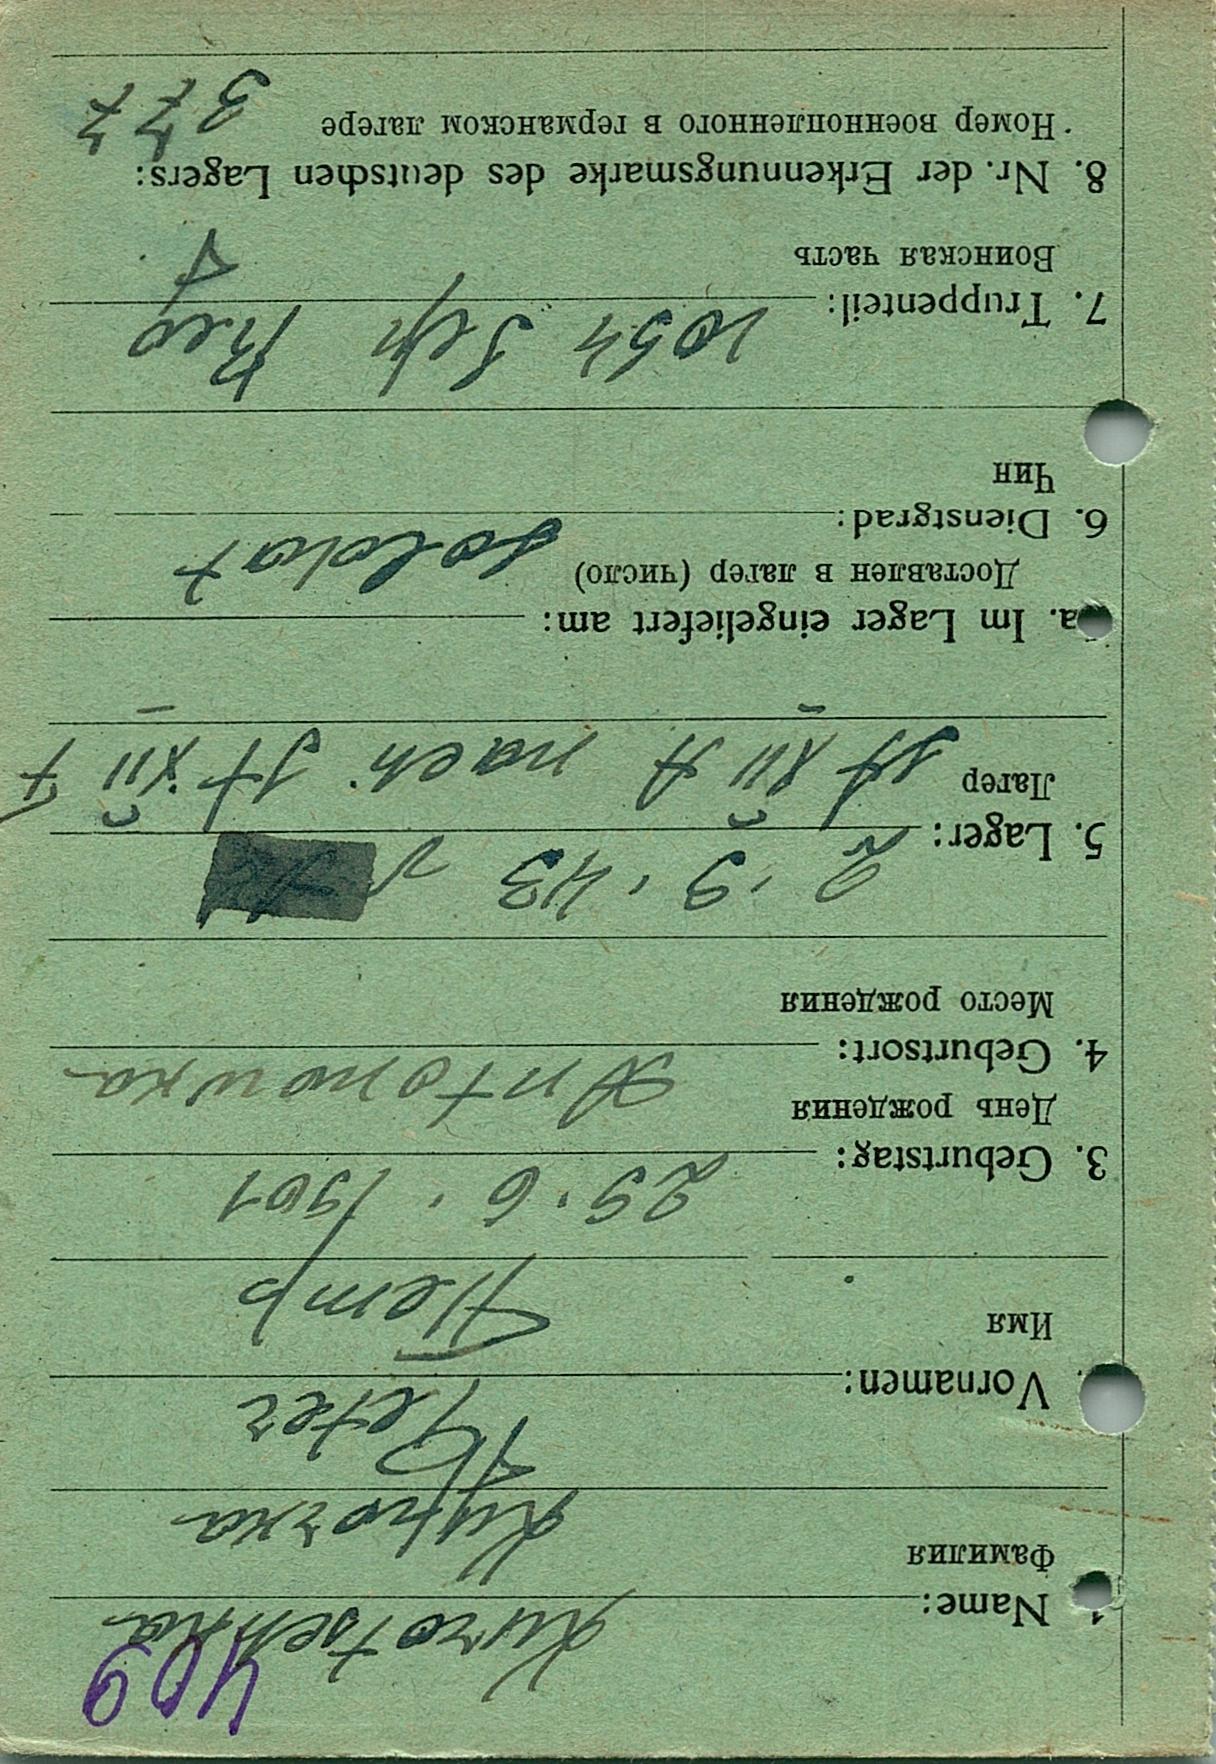 409
1. Name: Kurotschka
Фамилия Курочка
Vornamen: Peter
Имя Петр
3. Geburtstag: 29.6.1901
День рождения
4. Geburtsort: Antonowka
Место рождения
2.9.43
5. Lager:
Лагер St XII A nach St XII F
a. Im Lager eingeliefert am:
Доставлен в лагер (число)
6. Dienstgrad: Soldat
Чин
7. Truppenteil: 1054 Sch Reg
Воинская часть
8. Nr. der Erkennungsmarke des deutschen Lagers:
Номер военнопленного в германском лагере 377